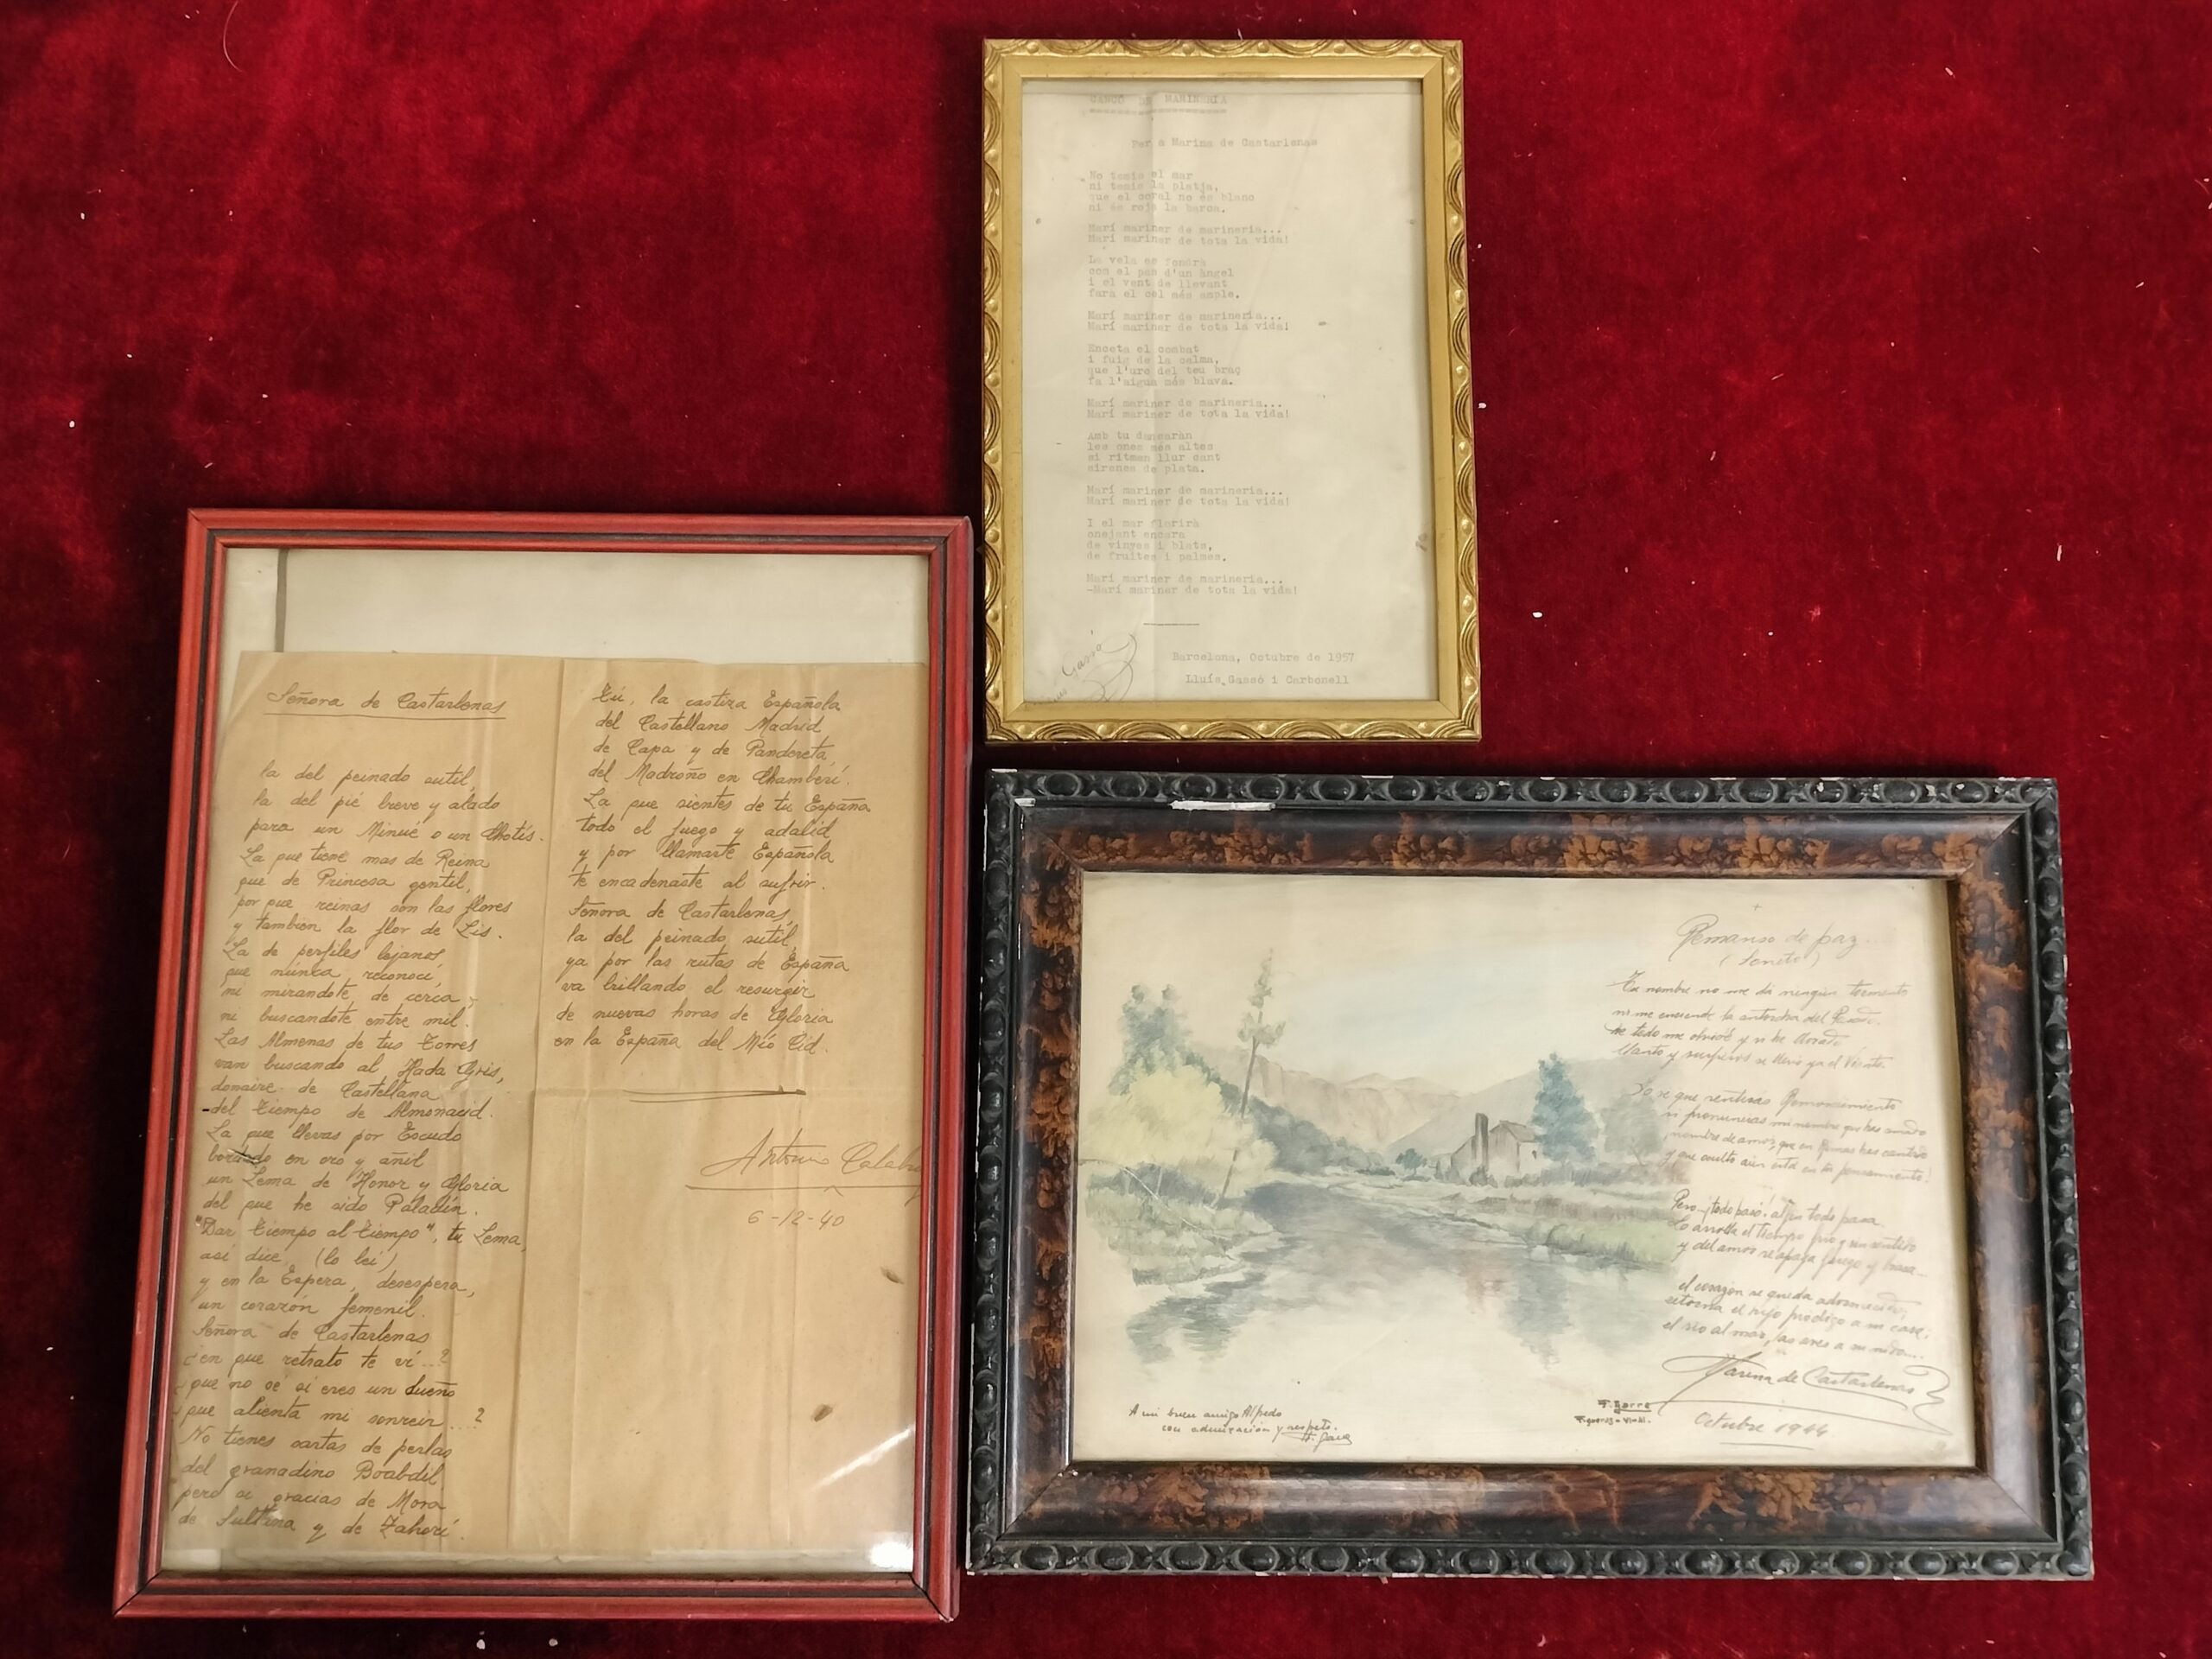 Señora de Castarlenas
la del peinado sutil,
la del pié breve y alado
para un Minué o un Chotis.
La que tiene mas de Reina
que de Princesa gentil,
por que reinas son las flores
y tambien la flor de Lis.
La de perfiles lejanos
que núnca reconocí,
ni mirandote de cerca
ni buscandote entre mil.
Las Almenas de tus Torres
van buscando al Hada Gris,
donaire de Castellana
del Tiempo de Almonacid.
La que llevas por Escudo
bordado en oro y añil
un Lema de Honor y Gloria
del que he sido Paladín.
"Dar Tiempo al Tiempo", tu Lema,
asi dice, (lo leí)
y en la Espera, desespera,
un corazón femenil.
Señora de Castarlenas
¿en que retrato te ví...?
que no sé si eres un Sueño
que alienta mi sonreir...?
No tienes sartas de perlas
del granadino Boabdil,
pero si gracias de Mora
de Sultana y de Zaherí.
Tú, la castiza Española
del Castellano Madrid
de Capa y de Pandereta,
del Madroño en Chamberí.
La que sientes de tu España
todo el fuego y adalid
y por llamarte Española
te encadenaste al sufrir.
Señora de Castarlenas,
la del peinado sutil,
ya por las rutas de España
va brillando el resurgir
de nuevas horas de Gloria
en la España del Mío Cid.
Antonio
6-12-40
CANÇÓ DE MARINERIA
Per a Marina de Castarlenas
No temis el mar
ni temis la platja,
que el coral no és blanc
ni és roja la barca.
Marí mariner de marineria...
Marí mariner de tota la vida!
La vela es fondrà
com el pas d'un àngel
i el vent de llevant
farà el cel més ample.
Marí mariner de marineria...
Marí mariner de tota la vida!
Enceta el combat
i fuig de la calma,
que l'urc del teu braç
fa l'aigua més blava.
Marí mariner de marineria...
Marí mariner de tota la vida!
Amb tu dansaràn
les ones més altes
si ritmen llur cant
sirenes de plata.
Marí mariner de marineria...
Marí mariner de tota la vida!
I el mar florirà
onejant encara
de vinyes i blats,
de fruites i palmes.
Marí mariner de marineria...
-Marí mariner de tota la vida!
Barcelona, Octubre de 1957
Lluís Gassó i Carbonell
Gassó
Remanso de paz
(Soneto)
Tu nombre no me dá ningún tormento
ni me enciende la antorcha del
de todo me olvidé y si he llorado
llanto y suspiros se llevó ya el viento.
Yo se que sentirás
si pronuncias mi nombre que has amado
nombre de amor, que en Rimas has cantado
y que oculto aún está en tu pensamiento!
Pero ¡todo pasó! al fin todo pasa,
lo arrolla el tiempo frio y sin sentido
y del amor se apaga fuego y brasa...
el corazón se queda adormecido,
retorna el hijo pródigo a su casa,
el río al mar, las aves a su nido...
Marina de Castarlenas
Octubre 1944
A mi buen amigo Alfredo
con admiración y respeto.